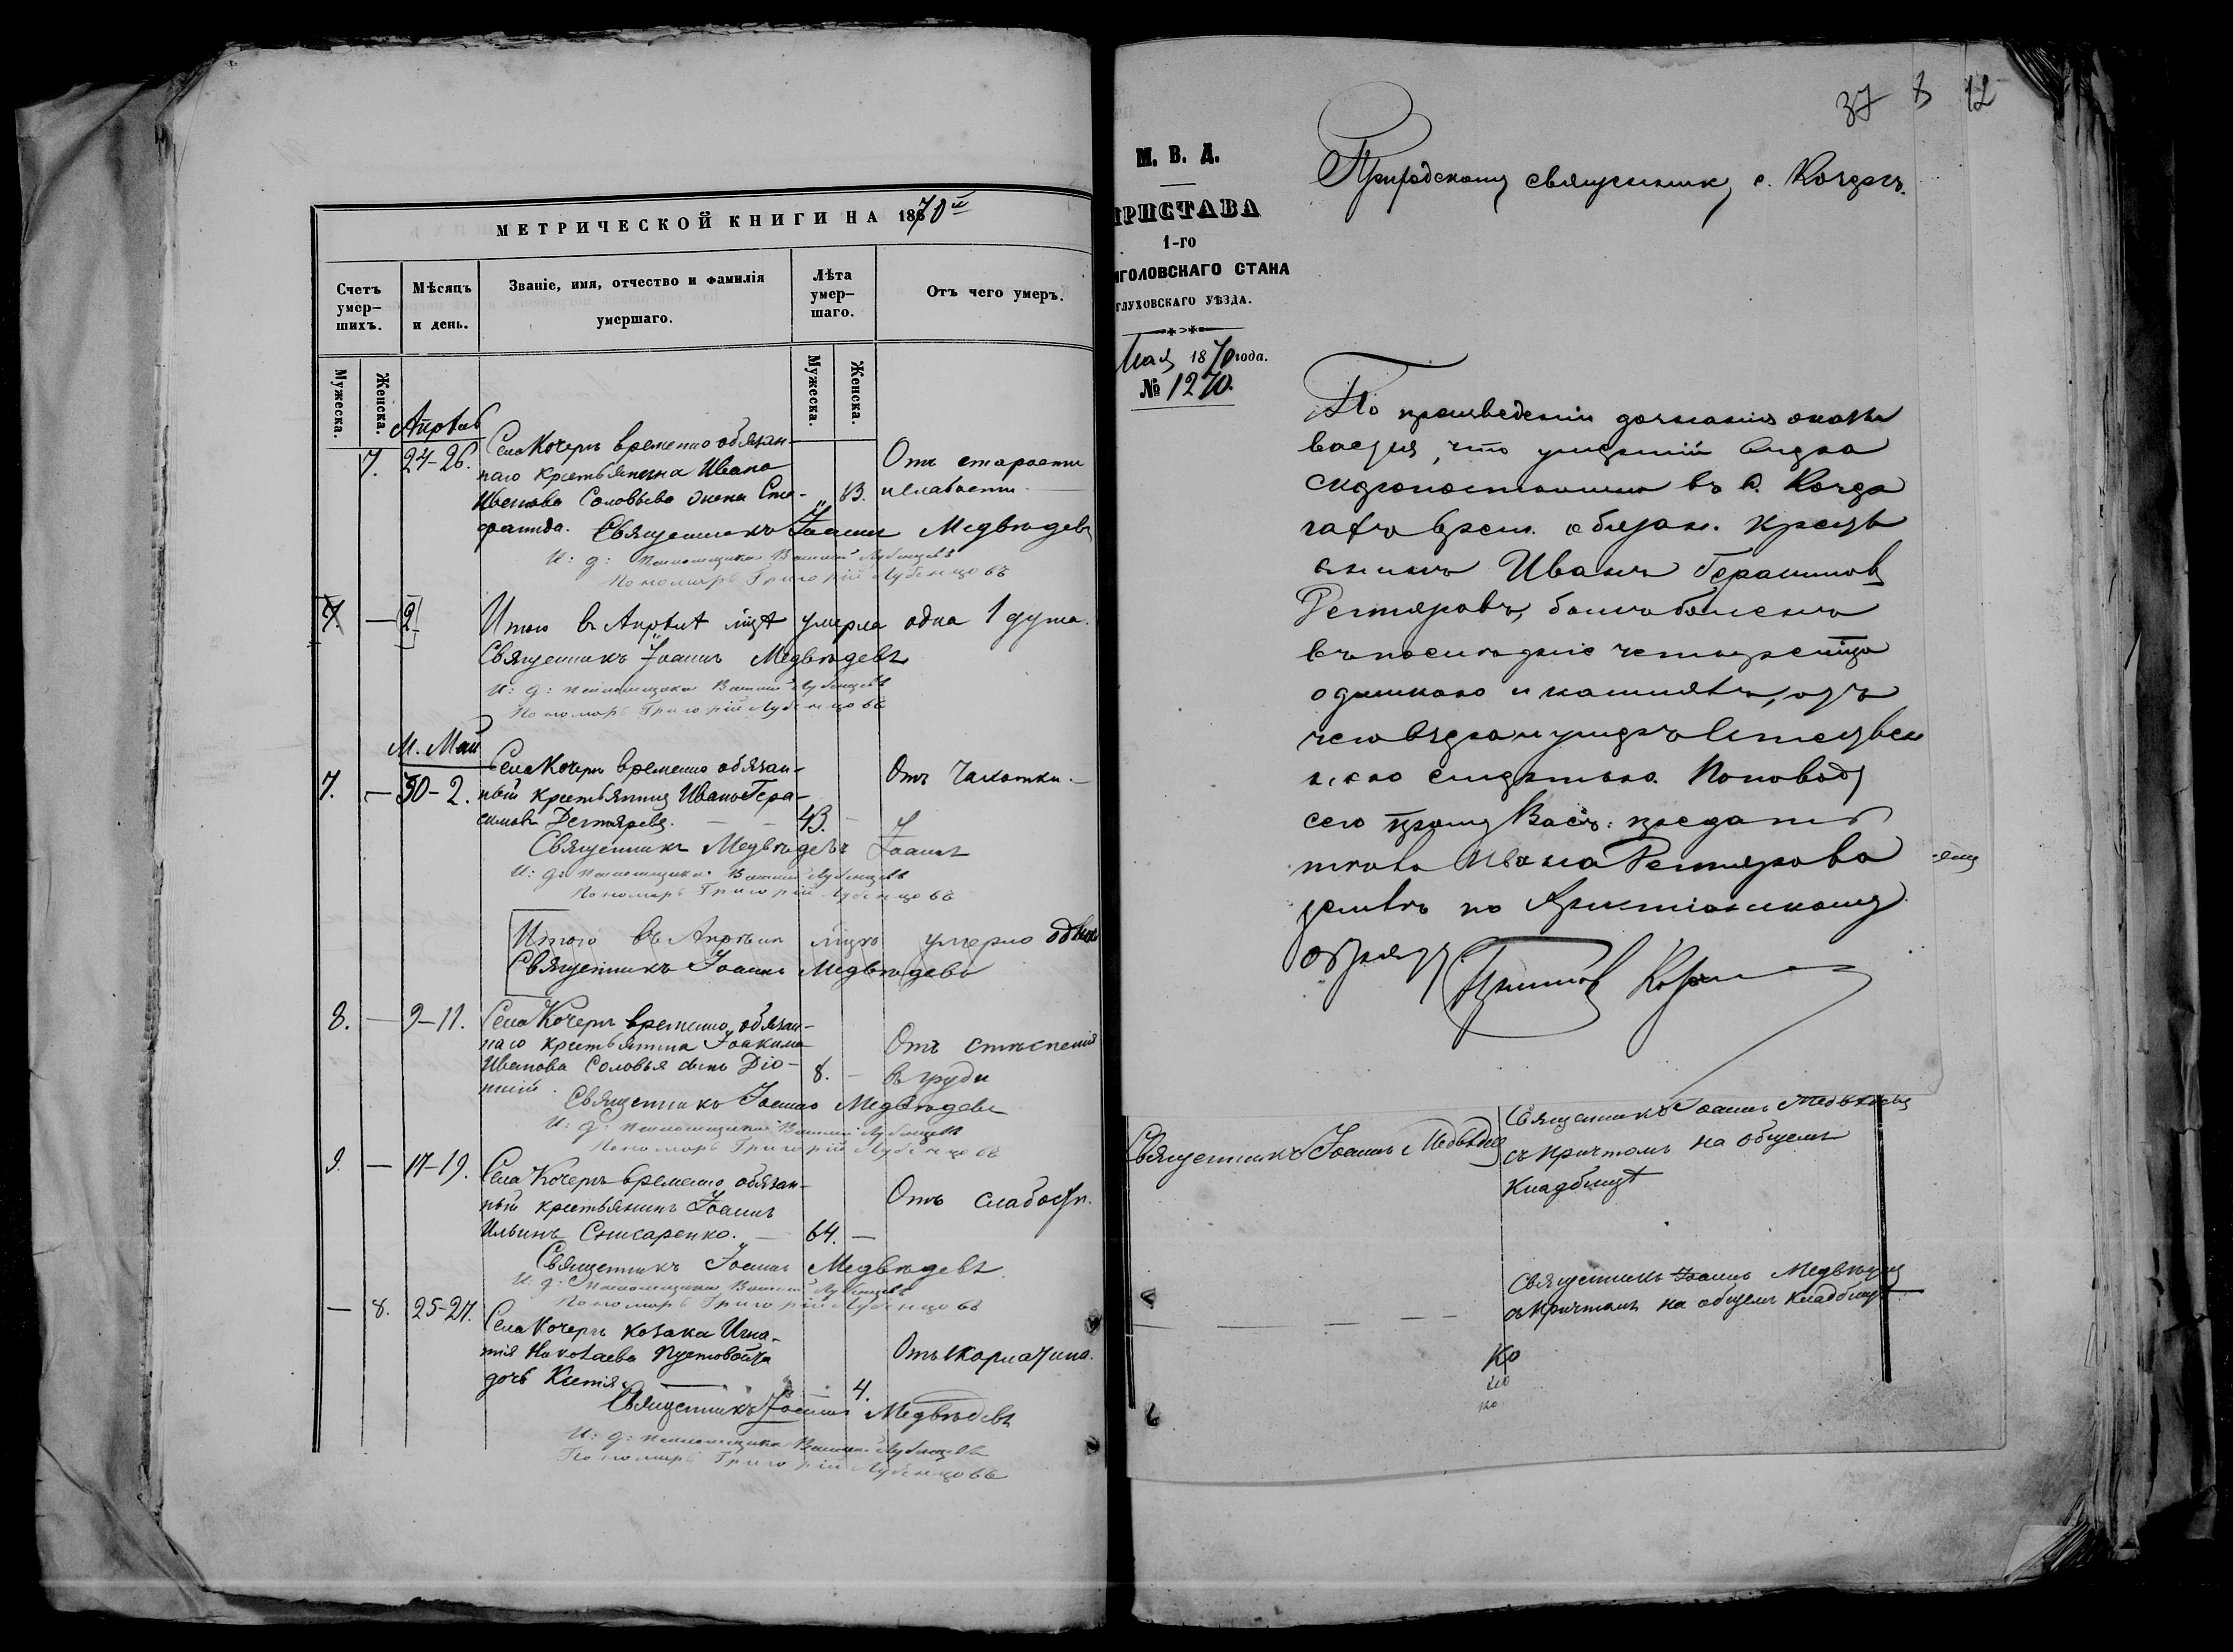 МЕТРИЧЕСКОЙ КНИГИ НА 1870й
Счетъ умер-шихъ.
Мѣсяцъ и день.
Званіе, имя, отчество и фамилія умершаго.
Лѣта умер-шаго.
Отъ чего умеръ.
Мужеска.
Женска.
Мужеска.
Женска.
Апрѣль
7. 24-26. Села Кочергъ временно обязан-
наго крестьянина Ивана
Иванова Соловьева жена Сте-
фанида. 83.
Отъ старости
и слабости
Священникъ Іоаннъ Медвѣдевъ
И: д: псаломщика Василій Лубенцевъ
Пономарь Григорій Лубенцовъ
Итого въ Апрѣлѣ мцѣ умерла одна 1 душа.
Священникъ Іоаннъ Медвѣдевъ
И: д: псаломщика Василій Лубенцевъ
Пономарь Григорій Лубенцовъ
М. Май
7. — 30-2. Села Кочергъ временно обязан-
ный крестьянинъ Иванъ Гера-
симовъ Дегтяревъ. 43.
Отъ чахотки.
Священникъ Медвѣдевъ Іоаннъ
И: д: псаломщика Василій Лубенцевъ
Пономарь Григорій Лубенцовъ
Итого въ Апрѣлѣ мцѣ умерло
Священникъ Іоаннъ Медвѣдевъ
8. — 9-11. Села Кочергъ временно обязан-
наго крестьянина Іоакима
Иванова Соловья сынъ Діо-
нисій. 8. —
Отъ стѣсненія
въ груди
Священникъ Іоаннъ Медвѣдевъ
И: д: псаломщика Василій Лубенцевъ
Пономарь Григорій Лубенцовъ
9. — 17-19. Села Кочергъ временно обязан-
ный крестьянинъ Іоаннъ
Ильинъ Снисаренко. 64. —
Отъ слабости.
Священникъ Іоаннъ Медвѣдевъ
И: д: псаломщика Василій Лубенцевъ
Пономарь Григорій Лубенцовъ
— 8. 25-27. Села Кочергъ козака Игна-
тія Николаева Пустовойта
дочь Ксенія. 4.
Отъ скарлатины.
Священникъ Іоаннъ Медвѣдевъ
И: д: псаломщика Василій Лубенцевъ
Пономарь Григорій Лубенцовъ
37 12
М. В. Д.
ПРИСТАВА
1-го
ГОЛОВСКАГО СТАНА
ГЛУХОВСКАГО УѢЗДА.
Мая 1870 года.
№ 1270.
Приходскому священнику с. Кочергъ.
По произведеніи дознанія оказы
вается, что умершій
скоропостижно въ с. Кочер
гахъ врем. обязан. кресть
янинъ Иванъ Герасимовъ
Дегтяровъ, былъ боленъ
въ последніе четыре мца
одышкою и кашлемъ, отъ
чего и умеръ естествен
ною смертью. По поводу
сего прошу Васъ: предать
тело Ивана Дегтярова
землѣ по Христіанскому
обряду.
Приставъ
Священникъ Іоаннъ Медвѣдевъ
Священникъ Іоаннъ Медвѣдевъ
съ причтомъ на общемъ
кладбищѣ
Священникъ Іоаннъ Медвѣдевъ
съ причтомъ на общемъ кладбищѣ